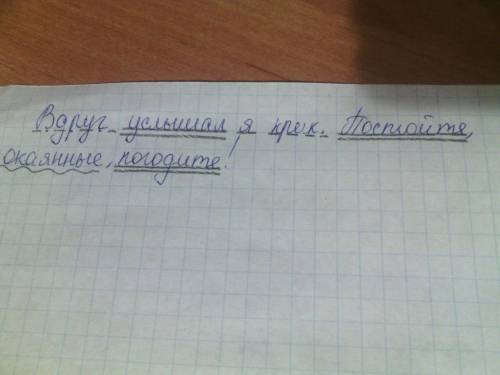 Вдруг услышал я крик. Постойте,
окаянные, погодите!